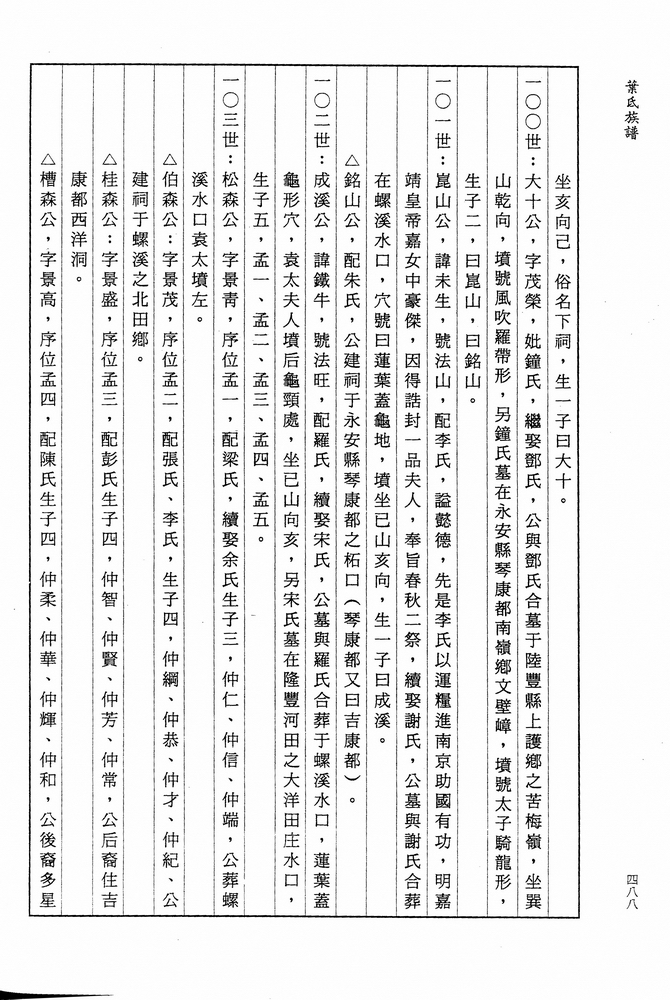 葉氏族譜
四八八
坐亥向己，俗名下祠，生一子曰大十。
一〇〇世：大十公，字茂榮，妣鐘氏，繼娶鄧氏，公與鄧氏合墓于陸豐縣上護鄉之苦梅嶺，坐巽
山乾向，墳號風吹羅帶形，另鐘氏墓在永安縣琴康都南嶺鄉文壁嶂，墳號太子騎龍形，
生子二，曰崑山，曰銘山。
一〇一世：崑山公，諱未生，號法山，配李氏，謚懿德，先是李氏以運糧進南京助國有功，明嘉
靖皇帝嘉女中豪傑，因得誥封一品夫人，奉旨春秋二祭，續娶謝氏，公墓與謝氏合葬
在螺溪水口，穴號曰蓮葉蓋龜地，墳坐已山亥向，生一子曰成溪。
△銘山公，配朱氏，公建祠于永安縣琴康都之柘口（琴康都又曰吉康都）。
一〇二世：成溪公，諱鐵牛，號法旺，配羅氏，續娶宋氏，公墓與羅氏合葬于螺溪水口，蓮葉蓋
龜形穴，袁太夫人墳后龜頸處，坐已山向亥，另宋氏墓在隆豐河田之大洋田庄水口，
生子五，孟一、孟二、孟三、孟四、孟五。
一〇三世：松森公，字景青，序位孟一，配梁氏，續娶余氏生子三，仲仁、仲信、仲端，公葬螺
溪水口袁太墳左。
△伯森公：字景茂，序位孟二，配張氏、李氏，生子四，仲綱、仲恭、仲才、仲紀、公
建祠于螺溪之北田鄉。
△桂森公：字景盛，序位孟三，配彭氏生子四，仲智、仲賢、仲芳、仲常，公后裔住吉
康都西洋洞。
△槽森公，字景高，序位孟四，配陳氏生子四，仲柔、仲華、仲輝、仲和，公後裔多星